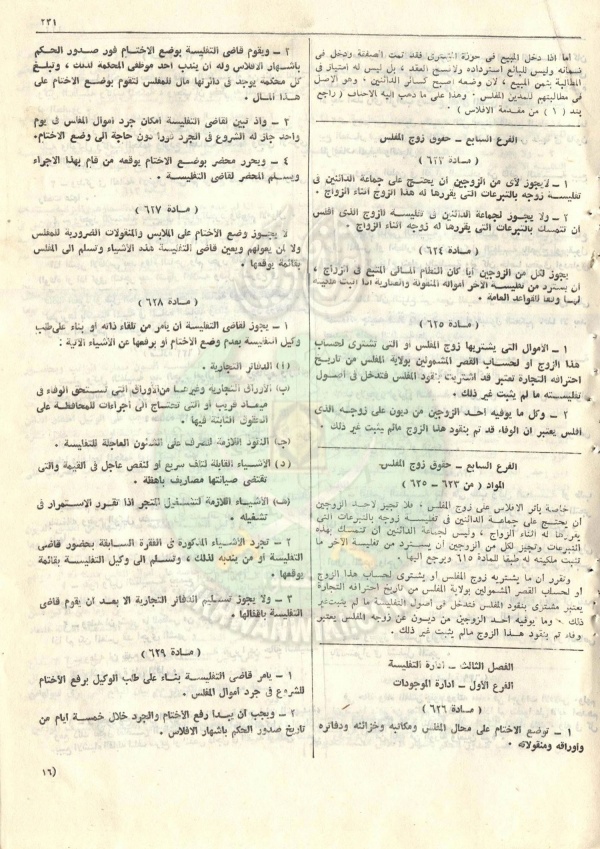 ٢٣١
اما اذا دخل المبيع في حوزة المشترى فقد تمت الصفقة ودخل في
ضمانه وليس للبائع استرداده ولا فسخ العقد ، بل ليس له امتياز في
المطالبة بثمن المبيع ، لان وضعه اصبح كسائر الدائنين ، وهو الاصل
في مطالبتهم للمدين المفلس . وهذا على ما ذهب اليه الاحناف ( راجع
بند ( ١ ) من مقدمة الافلاس ) .
الفرع السابع – حقوق زوج المفلس
( مادة ٦٢٣ )
١ – لايجوز لأى من الزوجين ان يحتج على جماعة الدائنين في
تفليسة زوجه بالتبرعات التى يقررها له هذا الزوج أثناء الزواج .
٢ – ولا يجوز لجماعة الدائنين فى تفليسة الزوج الذى أفلس
ان تتمسك بالتبرعات التى يقررها له زوجه أثناء الزواج .
( مادة ٦٢٤ )
يجوز لكل من الزوجين أيا كان النظام المالى المتبع في الزواج ،
أن يسترد من تفليسة الآخر أمواله المنقولة والعقارية اذا أثبت ملكيته
لهـا وفقا للقواعد العامة .
( مادة ٦٢٥ )
١ – الاموال التى يشتريها زوج المفلس أو التى تشترى لحساب
هذا الزوج أو لحساب القصر المشمولين بولاية المفلس من تاريخ
احترافه التجارة تعتبر قد اشتريت بنقود المفلس فتدخل فى أصول
تفليسته ما لم يثبت غير ذلك .
٢ – وكل ما يوفيه أحد الزوجين من ديون على زوجه الذى
أفلس يعتبر ان الوفاء قد تم بنقود هذا الزوج مالم يثبت غير ذلك .
الفرع السابع – حقوق زوج المفلس
المواد ( من ٦٢٣ – ٦٢٥ )
خاصة باثر الافلاس على زوج المفلس ، فلا تجيز لاحد الزوجين
ان يحتج على جماعة الدائنين في تفليسة زوجه بالتبرعات التى
يقررها له أثناء الزواج ، وليس لجماعة الدائنين ان تتمسك بهذه
التبرعات وتجيز لكل من الزوجين أن يسترد من تفليسة الآخر ما
تثبت ملكيته له طبقا للمادة ٦١٥ ويرجع اليها .
وتقرر أن ما يشتريه زوج المفلس أو يشترى لحساب هذا الزوج
أو لحساب القصر المشمولين بولاية المفلس من تاريخ احترافه التجارة
يعتبر مشترى بنقود المفلس فتدخل فى أصول التفليسة ما لم يثبت غير
ذلك . وما يوفيه أحد الزوجين من ديون عن زوجه المفلس يعتبر
وفاء تم بنقود هذا الزوج مالم يثبت غير ذلك .
الفصل الثالث – ادارة التفليسة
الفرع الأول – ادارة الموجودات
( مادة ٦٢٦ )
١ – توضع الاختام على محال المفلس ومكاتبه وخزائنه ودفاتره
وأوراقه ومنقولاته .
٢ – ويقوم قاضى التفليسة بوضع الاختام فور صدور الحكم
باشهار الافلاس وله أن يندب أحد موظفى المحكمة لذلك ، وتبلغ
كل محكمة يوجد في دائرتها مال للمفلس لتقوم بوضع الاختام على
هذا المال .
٣ – واذا تبين لقاضى التفليسة امكان جرد أموال المفلس في يوم
واحد جاز له الشروع في الجرد فورا دون حاجة الى وضع الاختام.
٤ – ويحرر محضر بوضع الاختام يوقعه من قام بهذا الاجراء
ويسلم المحضر لقاضى التفليسة .
( مادة ٦٢٧ )
لا يجوز وضع الاختام على الملابس والمنقولات الضرورية للمفلس
ولا لمن يعولهم ويعين قاضى التفليسة هذه الاشياء وتسلم الى المفلس
بقائمة يوقعها .
( مادة ٦٢٨ )
١ – يجوز لقاضى التفليسة أن يأمر من تلقاء ذاته أو بناء على طلب
وكيل التفليسة بعدم وضع الاختام أو برفعها عن الأشياء الآتية :
(أ) الدفاتر التجارية .
(ب) الأوراق التجارية وغيرها من الأوراق التى تستحق الوفاء فى
ميعاد قريب أو التى تحتاج الى اجراءات للمحافظة على
الحقوق الثابتة فيها .
(جـ) النقود اللازمة للصرف على الشئون العاجلة للتفليسة .
(د) الأشياء القابلة لتلف سريع أو لنقص عاجل فى القيمة والتى
تقتضى صيانتها مصاريف باهظة .
(هـ) الأشياء اللازمة لتشغيل المتجر اذا تقرر الاستمرار في
تشغيله .
٢ – تجرد الأشياء المذكورة في الفقرة السابقة بحضور قاضى
التفليسة أو من يندبه لذلك ، وتسلم الى وكيل التفليسة بقائمة
يوقعها .
٣ – ولا يجوز تسليم الدفاتر التجارية الا بعد أن يقوم قاضى
التفليسة باقفالها .
( مادة ٦٢٩ )
١ – يأمر قاضى التفليسة بناء على طلب الوكيل برفع الاختام
للشروع فى جرد أموال المفلس .
٢ – ويجب أن يبدأ رفع الاختام والجرد خلال خمسة أيام من
تاريخ صدور الحكم باشهار الافلاس .
(١٦